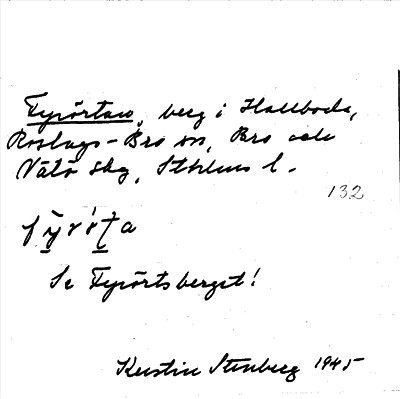 Fyrörtan, berg i Hallboda,
Roslags-Bro sn, Bro och
Vätö skg, Sthlms l.
132
fyrörta
Se Fyrörtsberget!
Kerstin Stenberg 1945